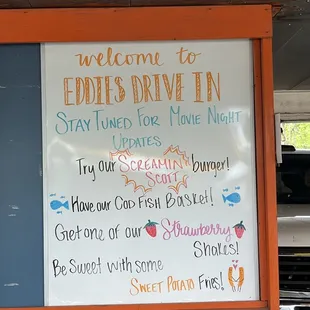 welcome to
EDDIES DRIVE IN
STAY TUNED FOR MOVIE NIGHT
UPDATES
Try our SCREAMIN
SCOTT burger!
Have our COD FISH BASKET!
Get one of our Strawberry
Shakes!
Be Sweet with some
SWEET POTATO Fries!